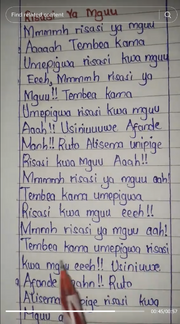 Find related content
Risasi Ya Mguu
Mmmmh risasi ya mguu
Aaaah Tembea kama
Umepigwa risasi kwa mguu
Eeeh, Mmmmh risasi ya
Mguu!! Tembea kama
Umepigwa risasi kwa mguu
Aah!! Usiniuuuwe Afande
Manh!! Ruto Alisema unipige
Risasi kwa Mguu Aaah!!
Mmmmh risasi ya mguu aah!
Tembea kama umepigwa
Risasi kwa mguu eeeh!!
Mmmh risasi ya mguu aah!
Tembea kama umepigwa risasi
kwa mguu eeeh!! Usiniuwe
Afande !! Ruto
Alisema risasi kwa
Mguu
00:48/00:57